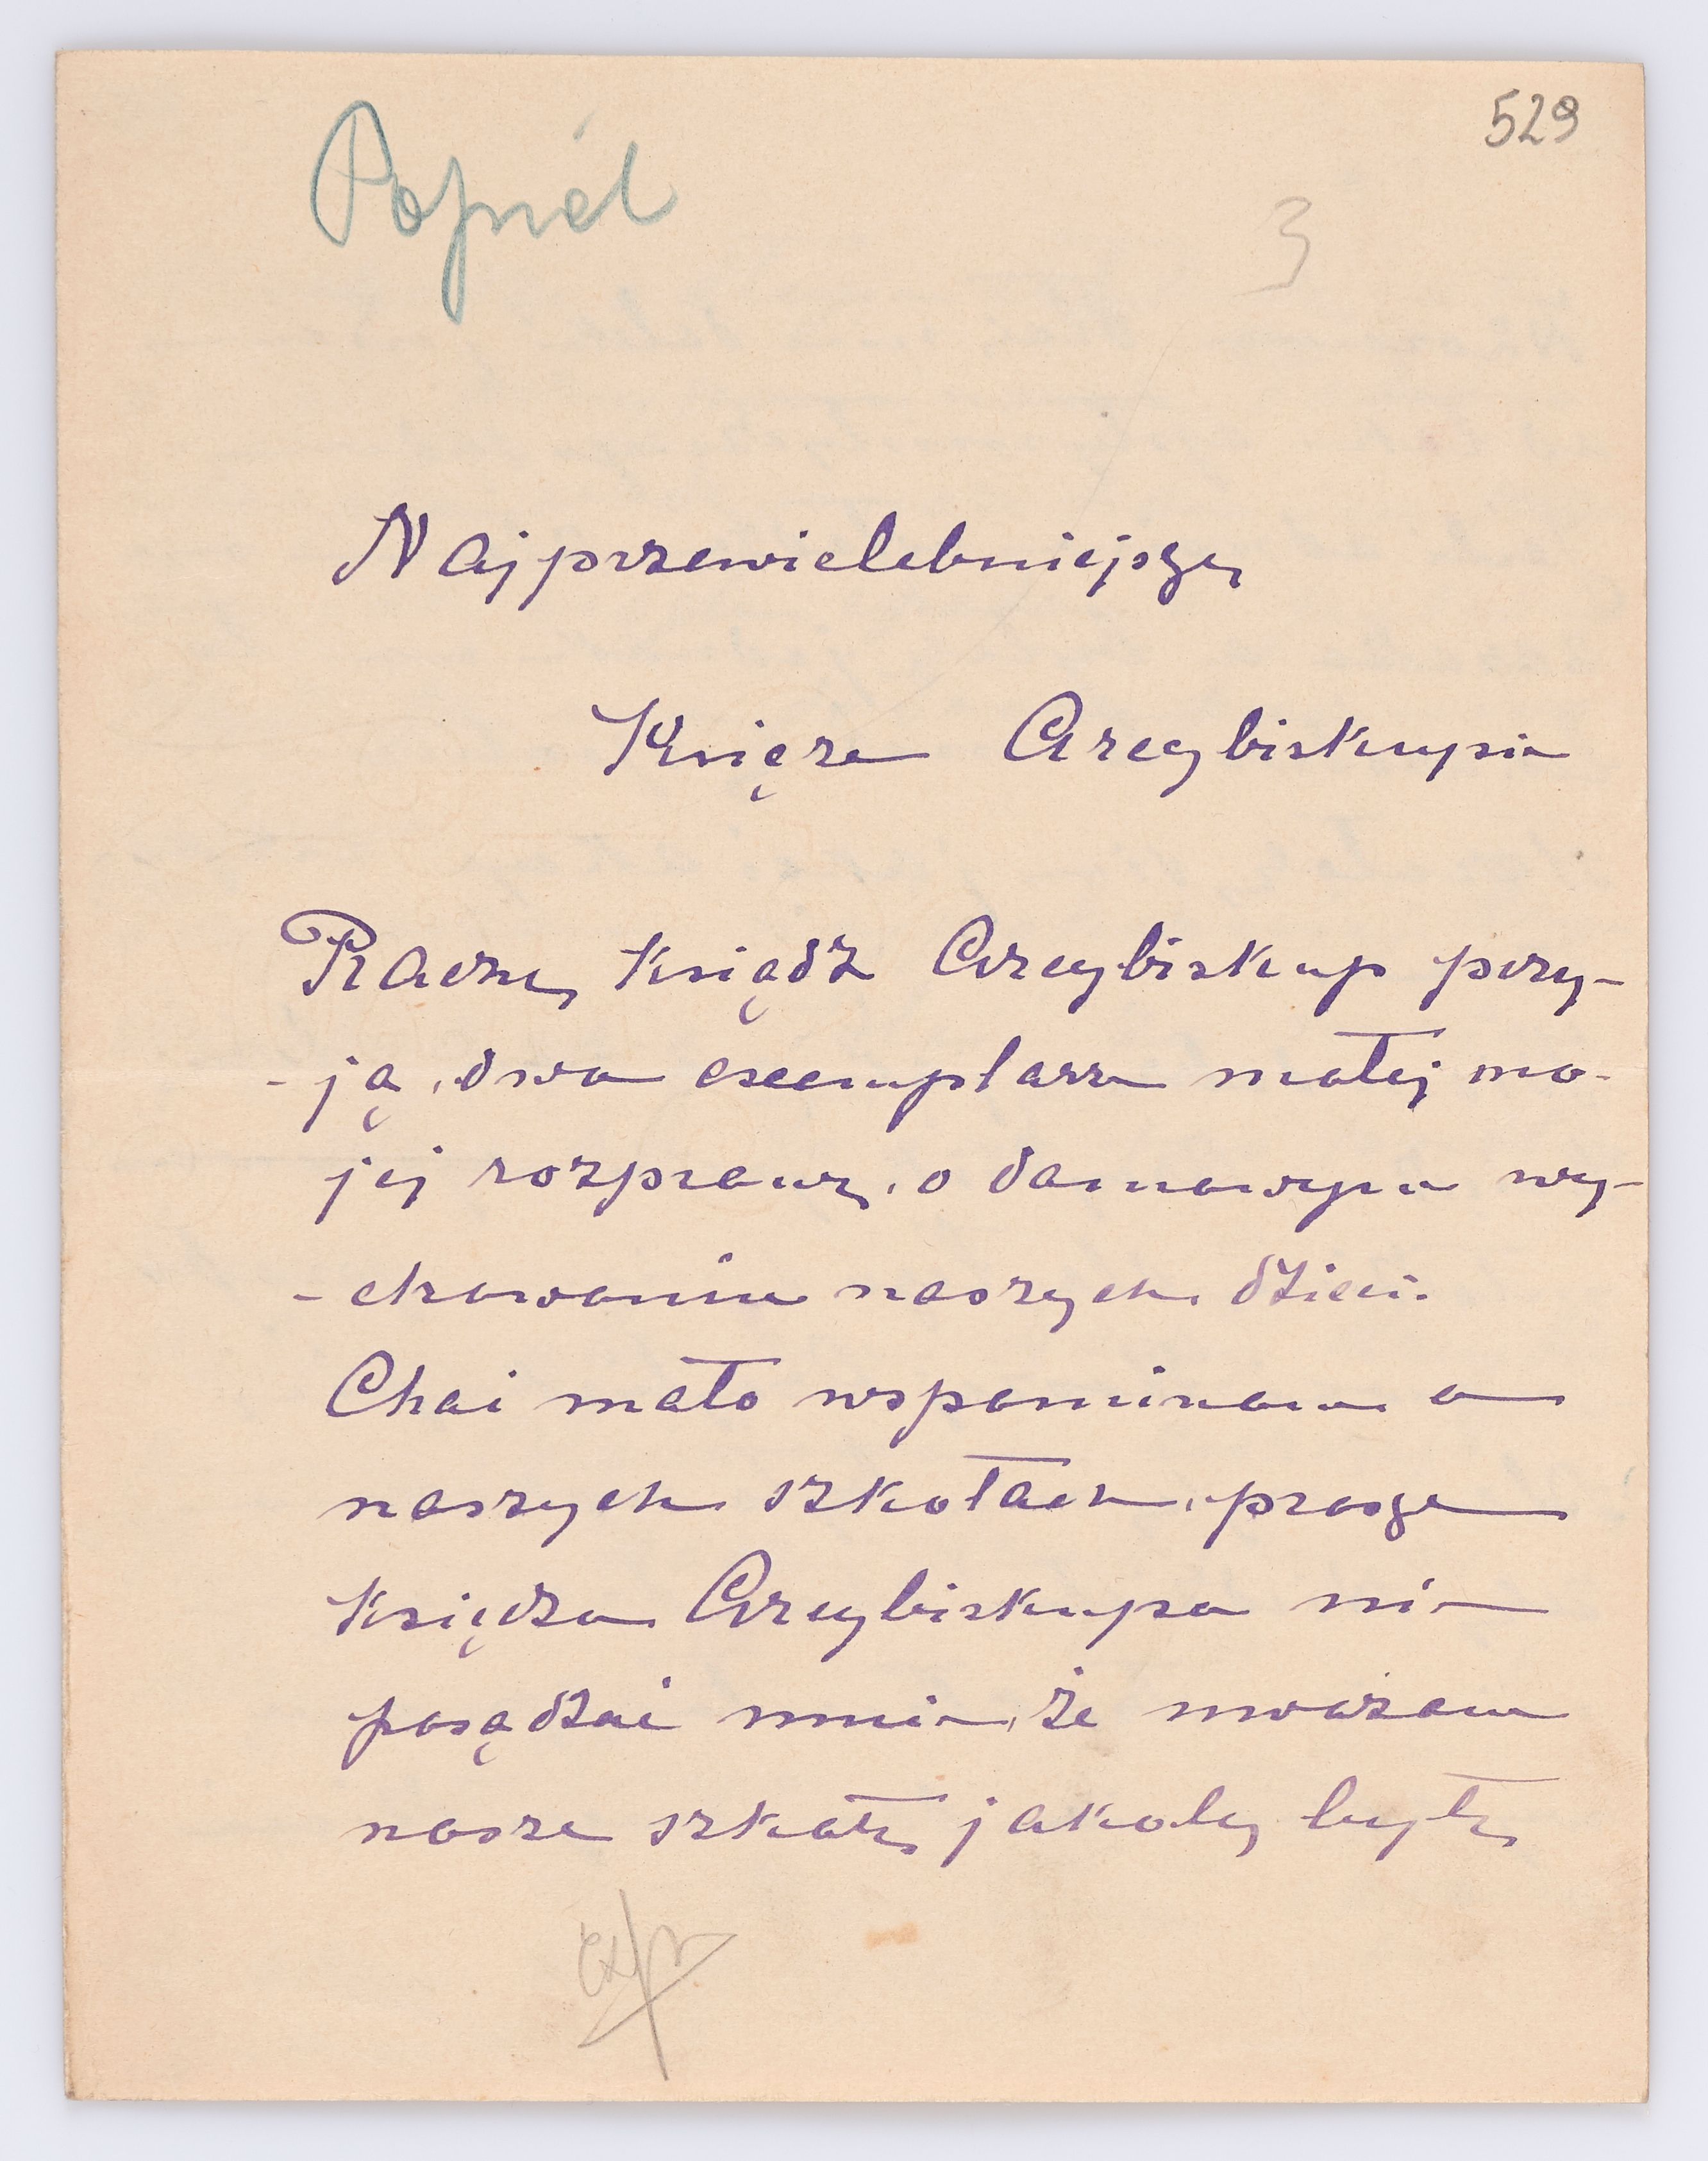 Popiel
529
3
Najprzewielebniejszy
Księże Arcybiskupie
Raczy Ksiądz Arcybiskup przy-
-ją dwa exemplarze małej mo-
jej rozprawy, o domowym wy-
-chowaniu naszych dzieci.
Choć mało wspominam o
naszych szkołach, proszę
Księdza Arcybiskupa nie
posądzać mnie, że uważam
nasze szkoły jakoby były